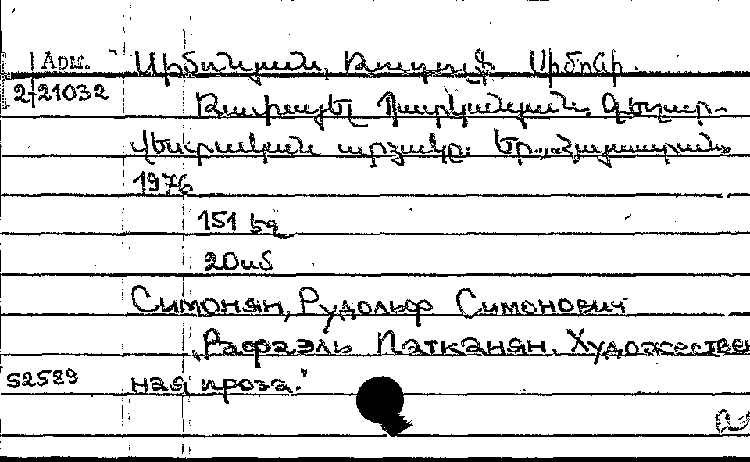 Арм.
2-21032
Սիմոնյան, Ռուդոլֆ Սիմոնի.
Ռափայել Պատկանյան. Գեղար-
վեստական արձակը. Եր., „Հայաստան„
1976
151 էջ
20սմ
Симонян, Рудольф Симонович
„Рафаэль Патканян. Художествен
52589 ная проза."